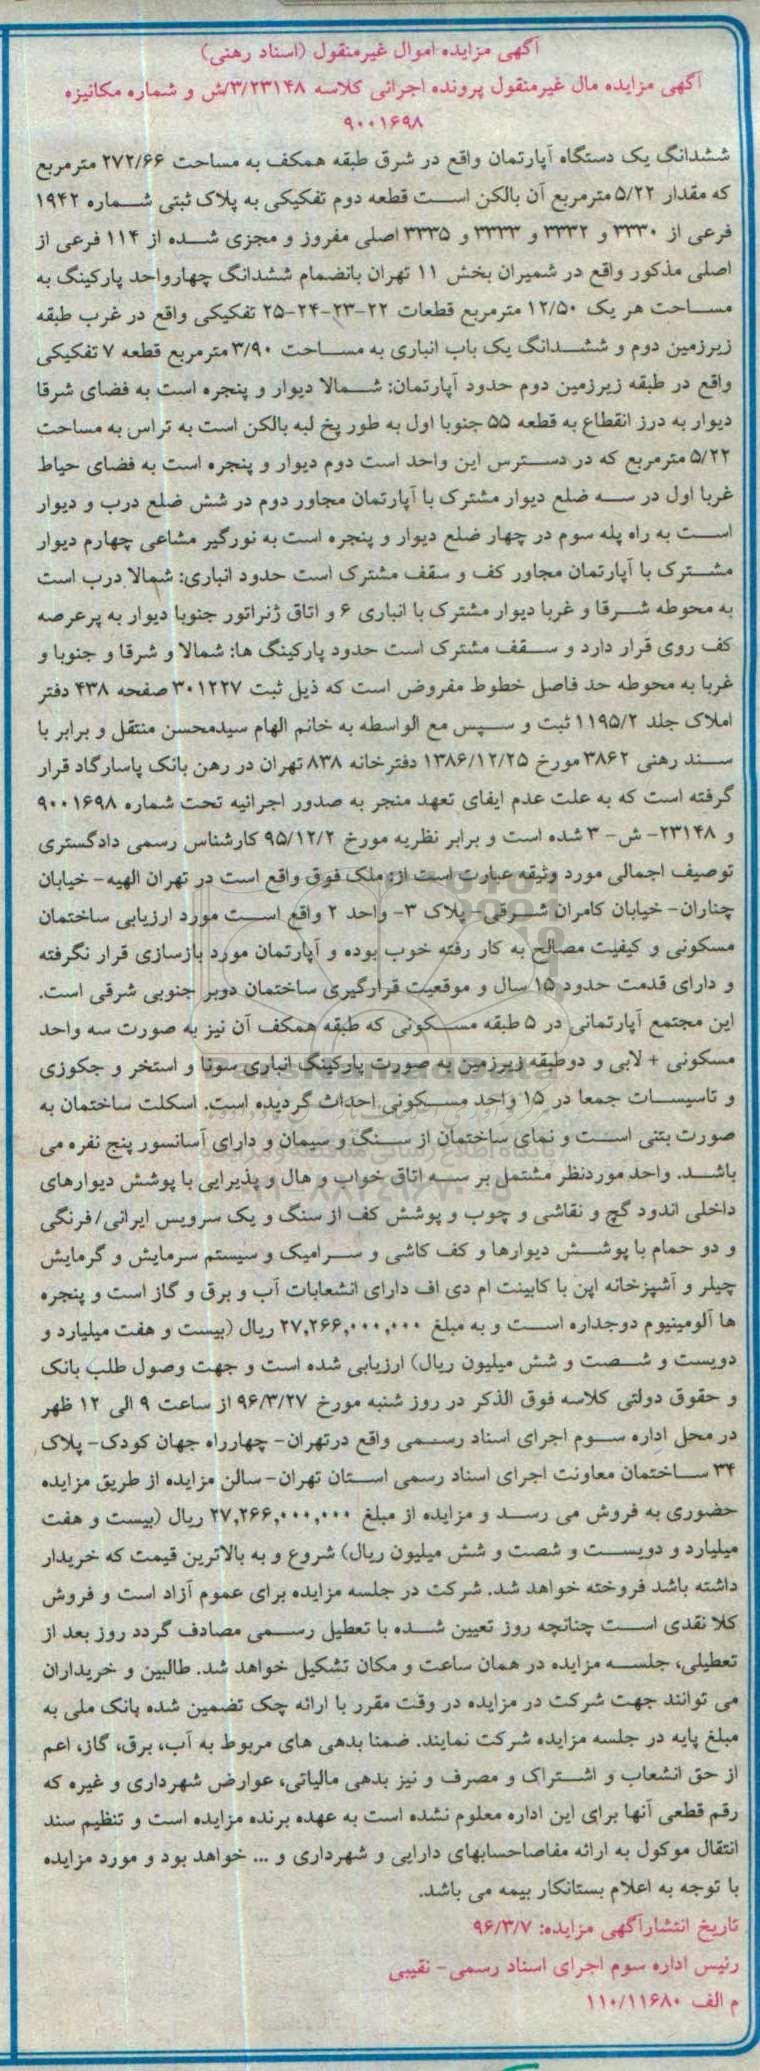 آگهی مزایده اموال غیرمنقول (اسناد رهنی)
آگهی مزایده مال غیرمنقول پرونده اجرائی کلاسه ۳/۲۳۱۴۸/ش و شماره مکانیزه
۹۰۰۱۶۹۸
ششدانگ یک دستگاه آپارتمان واقع در شرق طبقه همکف به مساحت ۲۷۲/۶۶ مترمربع
که مقدار ۵/۲۲ مترمربع آن بالکن است قطعه دوم تفکیکی به پلاک ثبتی شماره ۱۹۴۲
فرعی از ۳۳۳۰ و ۳۳۳۲ و ۳۳۳۳ و ۳۳۳۵ اصلی مفروز و مجزی شده از ۱۱۴ فرعی از
اصلی مذکور واقع در شمیران بخش ۱۱ تهران بانضمام ششدانگ چهارواحد پارکینگ به
مساحت هر یک ۱۲/۵۰ مترمربع قطعات ۲۲-۲۳-۲۴-۲۵ تفکیکی واقع در غرب طبقه
زیرزمین دوم و ششدانگ یک باب انباری به مساحت ۳/۹۰ مترمربع قطعه ۷ تفکیکی
واقع در طبقه زیرزمین دوم حدود آپارتمان: شمالا دیوار و پنجره است به فضای شرقا
دیوار به درز انقطاع به قطعه ۵۵ جنوبا اول به طور پخ لبه بالکن است به تراس به مساحت
۵/۲۲ مترمربع که در دسترس این واحد است دوم دیوار و پنجره است به فضای حیاط
غربا اول در سه ضلع دیوار مشترک با آپارتمان مجاور دوم در شش ضلع درب و دیوار
است به راه پله سوم در چهار ضلع دیوار و پنجره است به نورگیر مشاعی چهارم دیوار
مشترک با آپارتمان مجاور کف و سقف مشترک است حدود انباری: شمالا درب است
به محوطه شرقا و غربا دیوار مشترک با انباری ۶ و اتاق ژنراتور جنوبا دیوار به پرعرصه
کف روی قرار دارد و سقف مشترک است حدود پارکینگ ها: شمالا و شرقا و جنوبا و
غربا به محوطه حد فاصل خطوط مفروض است که ذیل ثبت ۳۰۱۲۲۷ صفحه ۴۳۸ دفتر
املاک جلد ۱۱۹۵/۲ ثبت و سپس مع الواسطه به خانم الهام سیدمحسن منتقل و برابر با
سند رهنی ۳۸۶۲ مورخ ۱۳۸۶/۱۲/۲۵ دفترخانه ۸۳۸ تهران در رهن بانک پاسارگاد قرار
گرفته است که به علت عدم ایفای تعهد منجر به صدور اجرائیه تحت شماره ۹۰۰۱۶۹۸
و ۲۳۱۴۸- ش- ۳ شده است و برابر نظریه مورخ ۹۵/۱۲/۲ کارشناس رسمی دادگستری
توصیف اجمالی مورد وثیقه عبارت است از: ملک فوق واقع است در تهران الهیه- خیابان
چناران- خیابان کامران شرقی- پلاک ۳- واحد ۲ واقع است مورد ارزیابی ساختمان
مسکونی و کیفیت مصالح به کار رفته خوب بوده و آپارتمان مورد بازسازی قرار نگرفته
و دارای قدمت حدود ۱۵ سال و موقعیت قرارگیری ساختمان دوبر جنوبی شرقی است.
این مجتمع آپارتمانی در ۵ طبقه مسکونی که طبقه همکف آن نیز به صورت سه واحد
مسکونی + لابی و دوطبقه زیرزمین به صورت پارکینگ انباری سونا و استخر و جکوزی
و تاسیسات جمعا در ۱۵ واحد مسکونی احداث گردیده است. اسکلت ساختمان به
صورت بتنی است و نمای ساختمان از سنگ و سیمان و دارای آسانسور پنج نفره می
باشد. واحد موردنظر مشتمل بر سه اتاق خواب و هال و پذیرایی با پوشش دیوارهای
داخلی اندود گچ و نقاشی و چوب و پوشش کف از سنگ و یک سرویس ایرانی/فرنگی
و دو حمام با پوشش دیوارها و کف کاشی و سرامیک و سیستم سرمایش و گرمایش
چیلر و آشپزخانه اپن با کابینت ام دی اف دارای انشعابات آب و برق و گاز است و پنجره
ها آلومینیوم دوجداره است و به مبلغ ۲۷,۲۶۶,۰۰۰,۰۰۰ ریال (بیست و هفت میلیارد و
دویست و شصت و شش میلیون ریال) ارزیابی شده است و جهت وصول طلب بانک
و حقوق دولتی کلاسه فوق الذکر در روز شنبه مورخ ۹۶/۳/۲۷ از ساعت ۹ الی ۱۲ ظهر
در محل اداره سوم اجرای اسناد رسمی واقع درتهران- چهارراه جهان کودک- پلاک
۳۴ ساختمان معاونت اجرای اسناد رسمی استان تهران- سالن مزایده از طریق مزایده
حضوری به فروش می رسد و مزایده از مبلغ ۲۷,۲۶۶,۰۰۰,۰۰۰ ریال (بیست و هفت
میلیارد و دویست و شصت و شش میلیون ریال) شروع و به بالاترین قیمت که خریدار
داشته باشد فروخته خواهد شد. شرکت در جلسه مزایده برای عموم آزاد است و فروش
کلا نقدی است چنانچه روز تعیین شده با تعطیل رسمی مصادف گردد روز بعد از
تعطیلی، جلسه مزایده در همان ساعت و مکان تشکیل خواهد شد. طالبین و خریداران
می توانند جهت شرکت در مزایده در وقت مقرر با ارائه چک تضمین شده بانک ملی به
مبلغ پایه در جلسه مزایده شرکت نمایند. ضمنا بدهی های مربوط به آب، برق، گاز، اعم
از حق انشعاب و اشتراک و مصرف و نیز بدهی مالیاتی، عوارض شهرداری و غیره که
رقم قطعی آنها برای این اداره معلوم نشده است به عهده برنده مزایده است و تنظیم سند
انتقال موکول به ارائه مفاصاحسابهای دارایی و شهرداری و ... خواهد بود و مورد مزایده
با توجه به اعلام بستانکار بیمه می باشد.
تاریخ انتشارآگهی مزایده: ۹۶/۳/۷
رئیس اداره سوم اجرای اسناد رسمی- نقیبی
م الف ۱۱۰/۱۱۶۸۰